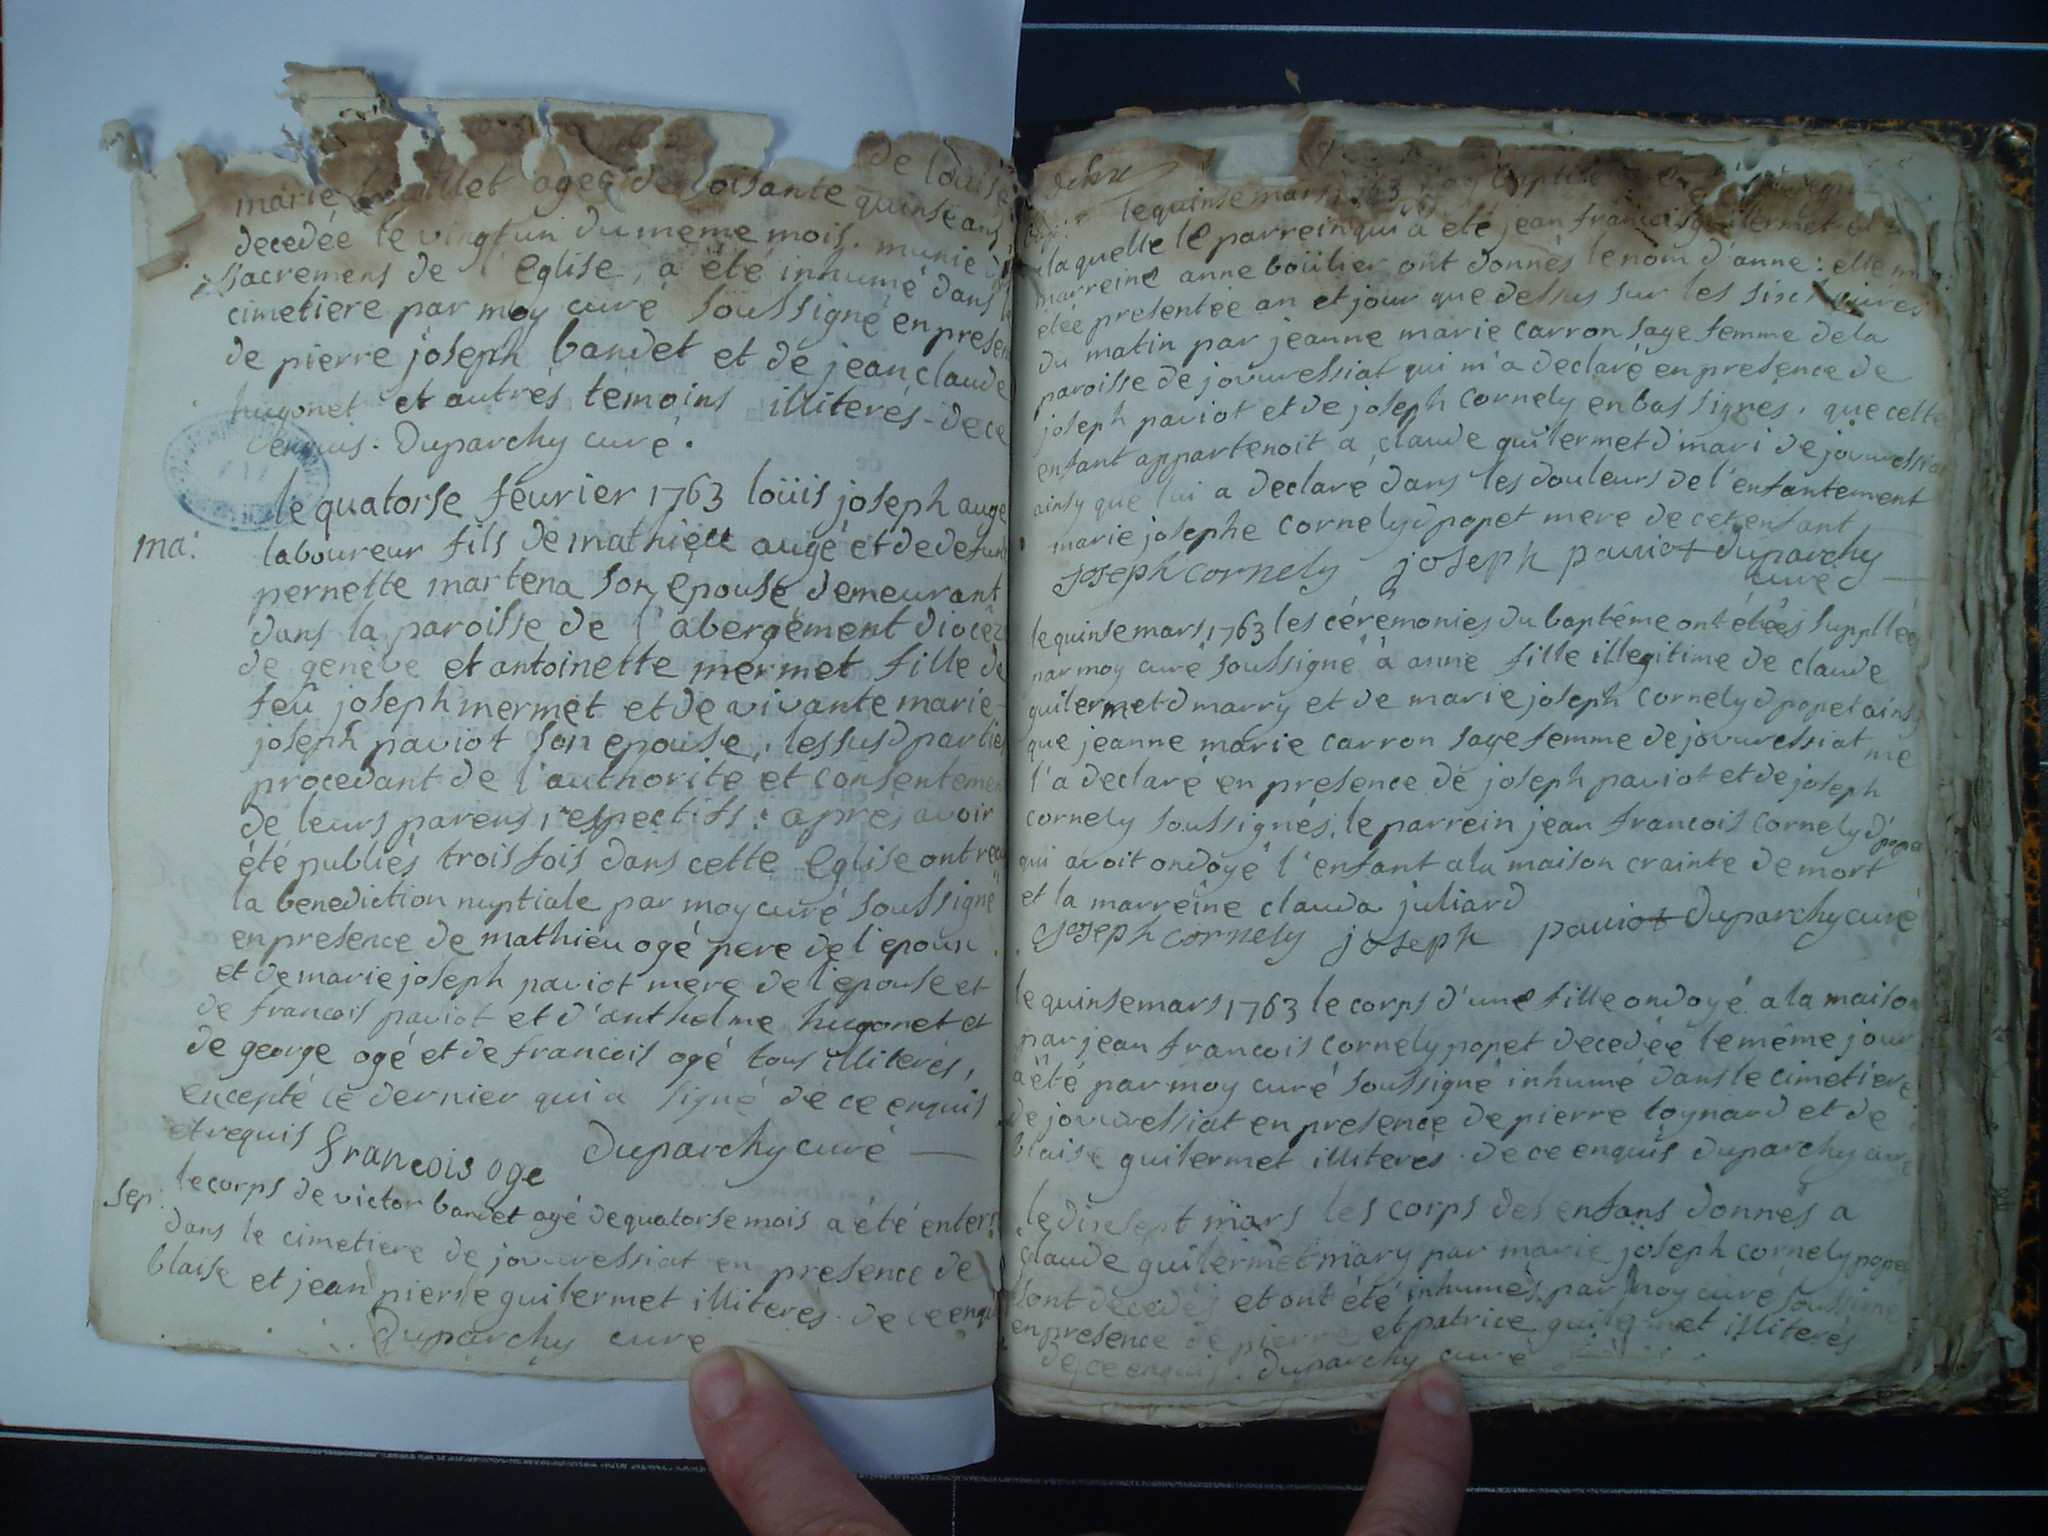 de louise
marie age de soisante quinse ans
decedée le vingt un du meme mois. munie
sacremens de l'Eglise, a été inhumé dans
cimetiere par moy curé soussigné en presen
de pierre joseph bandet et de jean claude
hugonet et autres temoins illiterés - de ce
enquis. Duparchy curé.
le quatorse février 1763 loüis joseph auge
ma: laboureur fils de mathieu augé et de defun
pernette martena son epouse demeurant
dans la paroisse de l'abergement diocese
de genève et antoinette mermet fille de
feû joseph mermet et de vivante marie
joseph paviot son epouse, les susd parties
procedant de l'authorité et consentemen
de leurs parens respectifs: aprés avoir
été publiés trois fois dans cette Eglise ont reçu
la benediction nuptiale par moy curé soussigné
en presence de mathieu ogé pere de l'epoux
et de marie joseph paviot mere de l'epouse et
de francois paviot et d'anthelme hugonet et
de george ogé et de francois ogé tous illiterés,
excepté ce dernier qui a signé de ce enquis
et requis francois oge Duparchy curé
sep: le corps de victor bandet agé de quatorse mois a été enterr
dans le cimetiere de jovuressiat en presence de
blaise et jean pierre guilermet illiterés. de ce enqui
Duparchy curé
le quinse mars 1763
la quelle le parrein qui a été jean francois guilermet
marreine anne boüilier ont donnés le nom d'anne: elle m
étée presentée an et jour que dessus sur les six heures
du matin par jeanne marie carron sage femme de la
paroisse de jovuressiat qui m'a declaré en presence de
joseph paviot et de joseph cornely en bas signés, que cette
enfant appartenoit a claude guilermet d'mari de jovuressiat
ainsy que lui a declaré dans les douleurs de l'enfantement
marie josephe cornely d popet mere de cet enfant
joseph cornely joseph paviot duparchy
curé
le quinse mars 1763 les cérémonies du baptême ont étées supplées
par moy curé soussigné à anne fille illegitime de claude
guilermet d marry et de marie joseph cornely d popet ainsy
que jeanne marie carron sage femme de jovuressiat me
l'a declaré en presence de joseph paviot et de joseph
cornely soussignés, le parrein jean francois cornely d' pope
qui avoit ondoyé l'enfant a la maison crainte de mort
et la marreine clauda juliard
joseph cornely joseph paviot Duparchy curé
le quinse mars 1763 le corps d'une fille ondoyé a la maison
par jean francois cornely popet decedée le même jour
a été par moy curé soussigné inhumé dans le cimetiere
de jovuressiat en presence de pierre loynard et de
blaise guilermet illiterés. de ce enquis duparchy curé
le dixsept mars les corps des enfans donnés a
claude guilermet mary par marie joseph cornely popet
sont decedés et ont été inhumés par moy curé soussigné
en presence de pierre et patrice guilermet illiterés
de ce enquis. duparchy curé